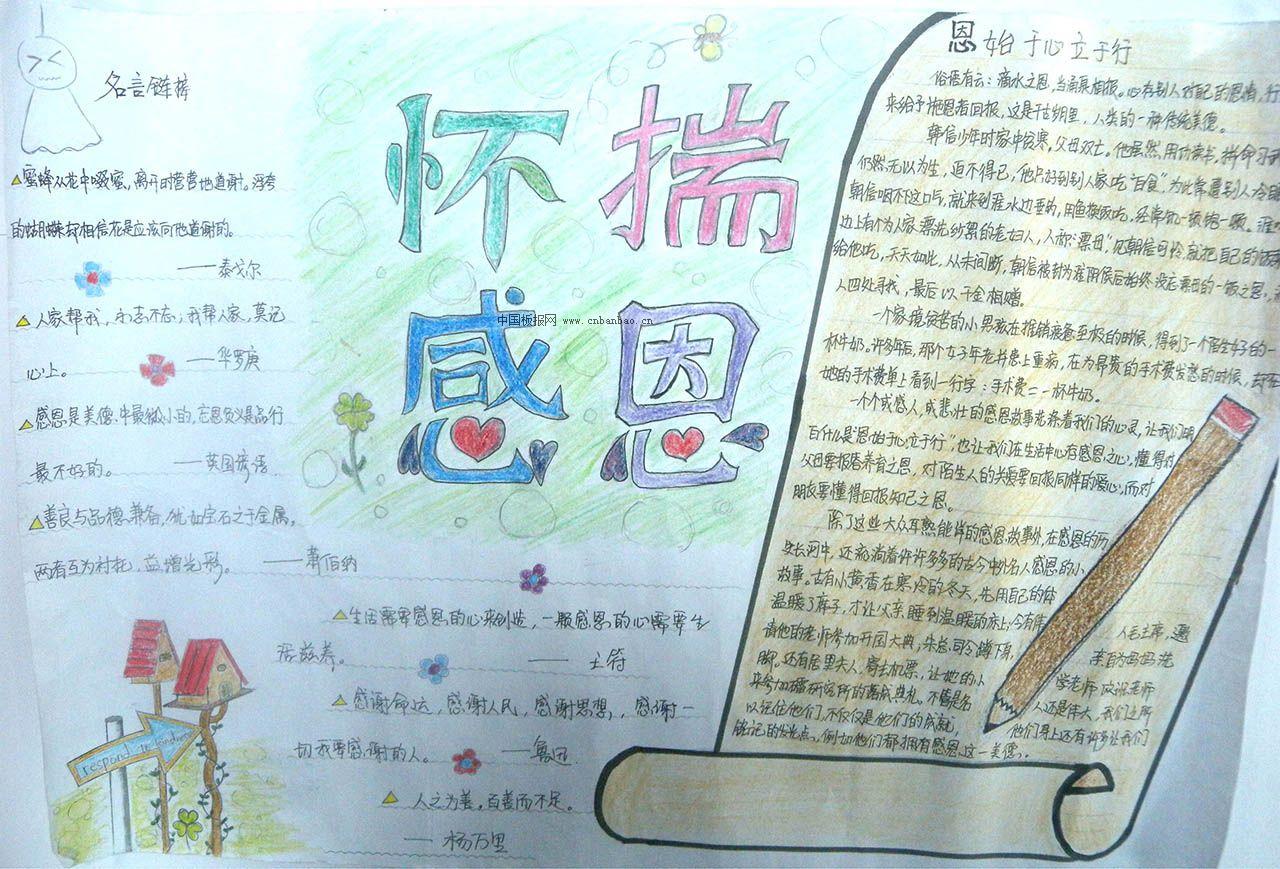 名言链接
蜜蜂从花中啜蜜,离开时营营地道谢。浮夸
的蝴蝶却相信花是应该向他道谢的。
——泰戈尔
人家帮我,永志不忘;我帮人家,莫记
心上。 ——华罗庚
感恩是美德中最微小的,忘恩负义是品行
最不好的。 ——英国谚语
善良与品德兼备,犹如宝石之于金属,
两者互为衬托,益增光彩。 ——萧伯纳
生活需要感恩的心来创造,一颗感恩的心需要生
活滋养。 —— 王符
感谢命运,感谢人民,感谢思想,感谢一
切我要感谢的人。 ——鲁迅
人之为善,百善而不足。
——杨万里
respond to kindness
怀揣
感恩
中国板报网 www.cnbanbao.cn
恩始于心立于行
俗语有云:滴水之恩,当涌泉相报。心有别人对自己的恩情,行
来给予他恩者回报,这是千古朝里,人类的一种传统美德。
韩信少年时家中贫寒,父母双亡。他虽然用功读书,拼命习武
仍然无以为生,迫不得已,他只好到别人家吃“白食”,为此常遭别人冷眼
韩信咽不下这口气,就来到淮水边垂钓,用鱼换饭吃,经常饥一顿饱一顿。淮
边上有个为人家漂洗纱絮的老妇人,人称“漂母”见韩信可怜,就把自己的饭
给他吃,天天如此,从未间断,韩信被封为淮阴侯后始终没忘漂母的一饭之恩,
人四处寻找,最后以千金相赠。
一个家境贫苦的小男孩在推销疲惫至极的时候,得到了一个陌生女子的一
杯牛奶。许多年后,那个女子年老并患上重病,在为昂贵的手术费发愁的时候,却在
她的手术费单上看到一行字:手术费=一杯牛奶。
一个个或感人,或悲壮的感恩故事洗涤着我们的心灵,让我们明
白什么是“恩始于心立于行”,也让我们在生活中心存感恩之心,懂得对
父母要报答养育之恩,对陌生人的关爱要回报同样的爱心,而对
朋友要懂得回报知己之恩。
除了这些大众耳熟能详的感恩故事外,在感恩的历
史长河中,还流淌着许许多多的古今中外名人感恩的小
故事。古有小黄香在寒冷的冬天,先用自己的体
温暖了席子,才让父亲睡到温暖的床上,今有伟 人毛主席,邀
请他的老师参加开国大典,朱总司令蹲下身, 亲自为妈妈洗
脚。还有居里夫人,寄去机票,让她的小 学老师欧班老师
来参加镭研究所的落成典礼。不管是名 人还是伟大,我们之所
以记住他们,不仅仅是他们的成就, 他们身上还有许多让我们
能记的发光点。例如他们都拥有感恩这一美德。